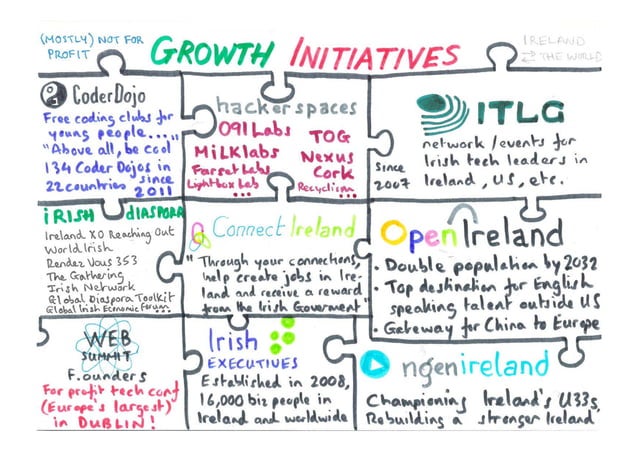 (MOSTLY) NOT FOR
PROFIT
GROWTH INITIATIVES
IRELAND
THE WORLD
CoderDojo
Free coding clubs for
young people....
"Above all, be cool"
134 Coder Dojos in
22 countries since
2011
hackerspaces
091 Labs
TOG
MiLKlabs
Nexus
Farset Labs
Cork
Lightbox Lab
Recyclism
...
ITLG
network/events for
Irish tech leaders in
Ireland, US, etc.
Since
2007
iRISH DIASPORA
Ireland XO Reaching Out
World Irish
Rendez Vous 353
The Gathering
Irish Network
Global Diaspora Toolkit
Global Irish Economic Forum...
Connect Ireland
"Through your connections,
help create jobs in Ire-
land and receive a reward
from the Irish Goverment"
Open Ireland
• Double population by 2032
• Top destination for English
speaking talent outside US
• Gateway for China to Europe
WEB
SUMMIT
F.ounders
For profit tech conf
(Europe's largest)
in DUBLIN!
Irish
EXECUTIVES
Established in 2008,
16,000 biz people in
Ireland and worldwide
ngenireland
Championing Ireland's U33s,
Rebuilding a stronger Ireland